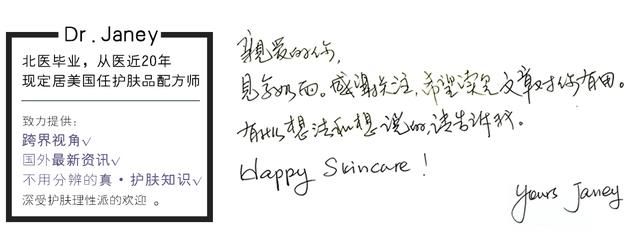 Dr. Janey
北医毕业，从医近20年
现定居美国任护肤品配方师
致力提供：
跨界视角√
国外最新资讯√
不用分辨的真·护肤知识√
深受护肤理性派的欢迎 。
親爱的你，
见字如面。感谢关注，希望读完文章对你有用。
有什么想法和想说的，请告诉我。
Happy Skincare !
yours Janey